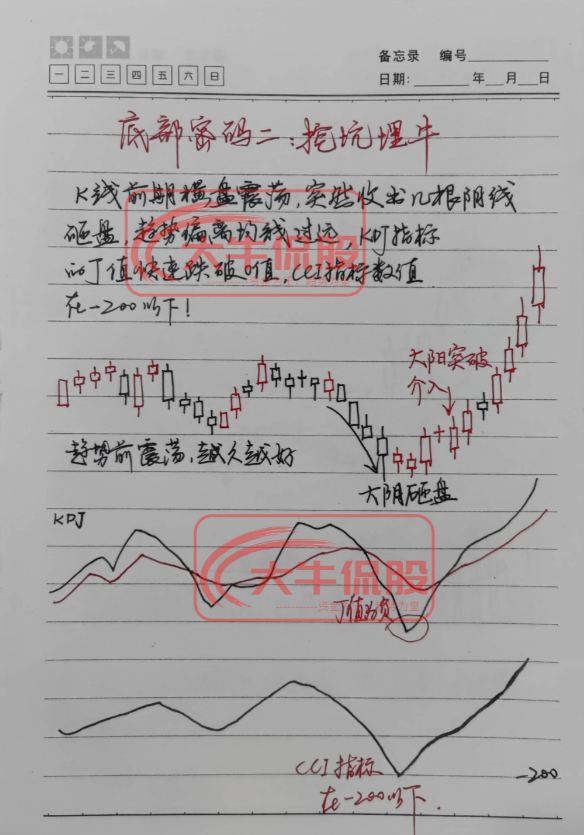 备忘录 编号
一 二 三 四 五 六 日
日期: 年 月 日
底部密码二:挖坑埋牛
K线前期横盘震荡,突然收出几根阴线
砸盘,趋势偏离均线过远,KDJ指标
的J值快速跌破0值,CCI指标数值
在-200以下!
大牛保股
大阳突破
介入
趋势前震荡,越久越好
大阴砸盘
KDJ
大牛保股
J值为负
CCI指标
在-200以下.
-200